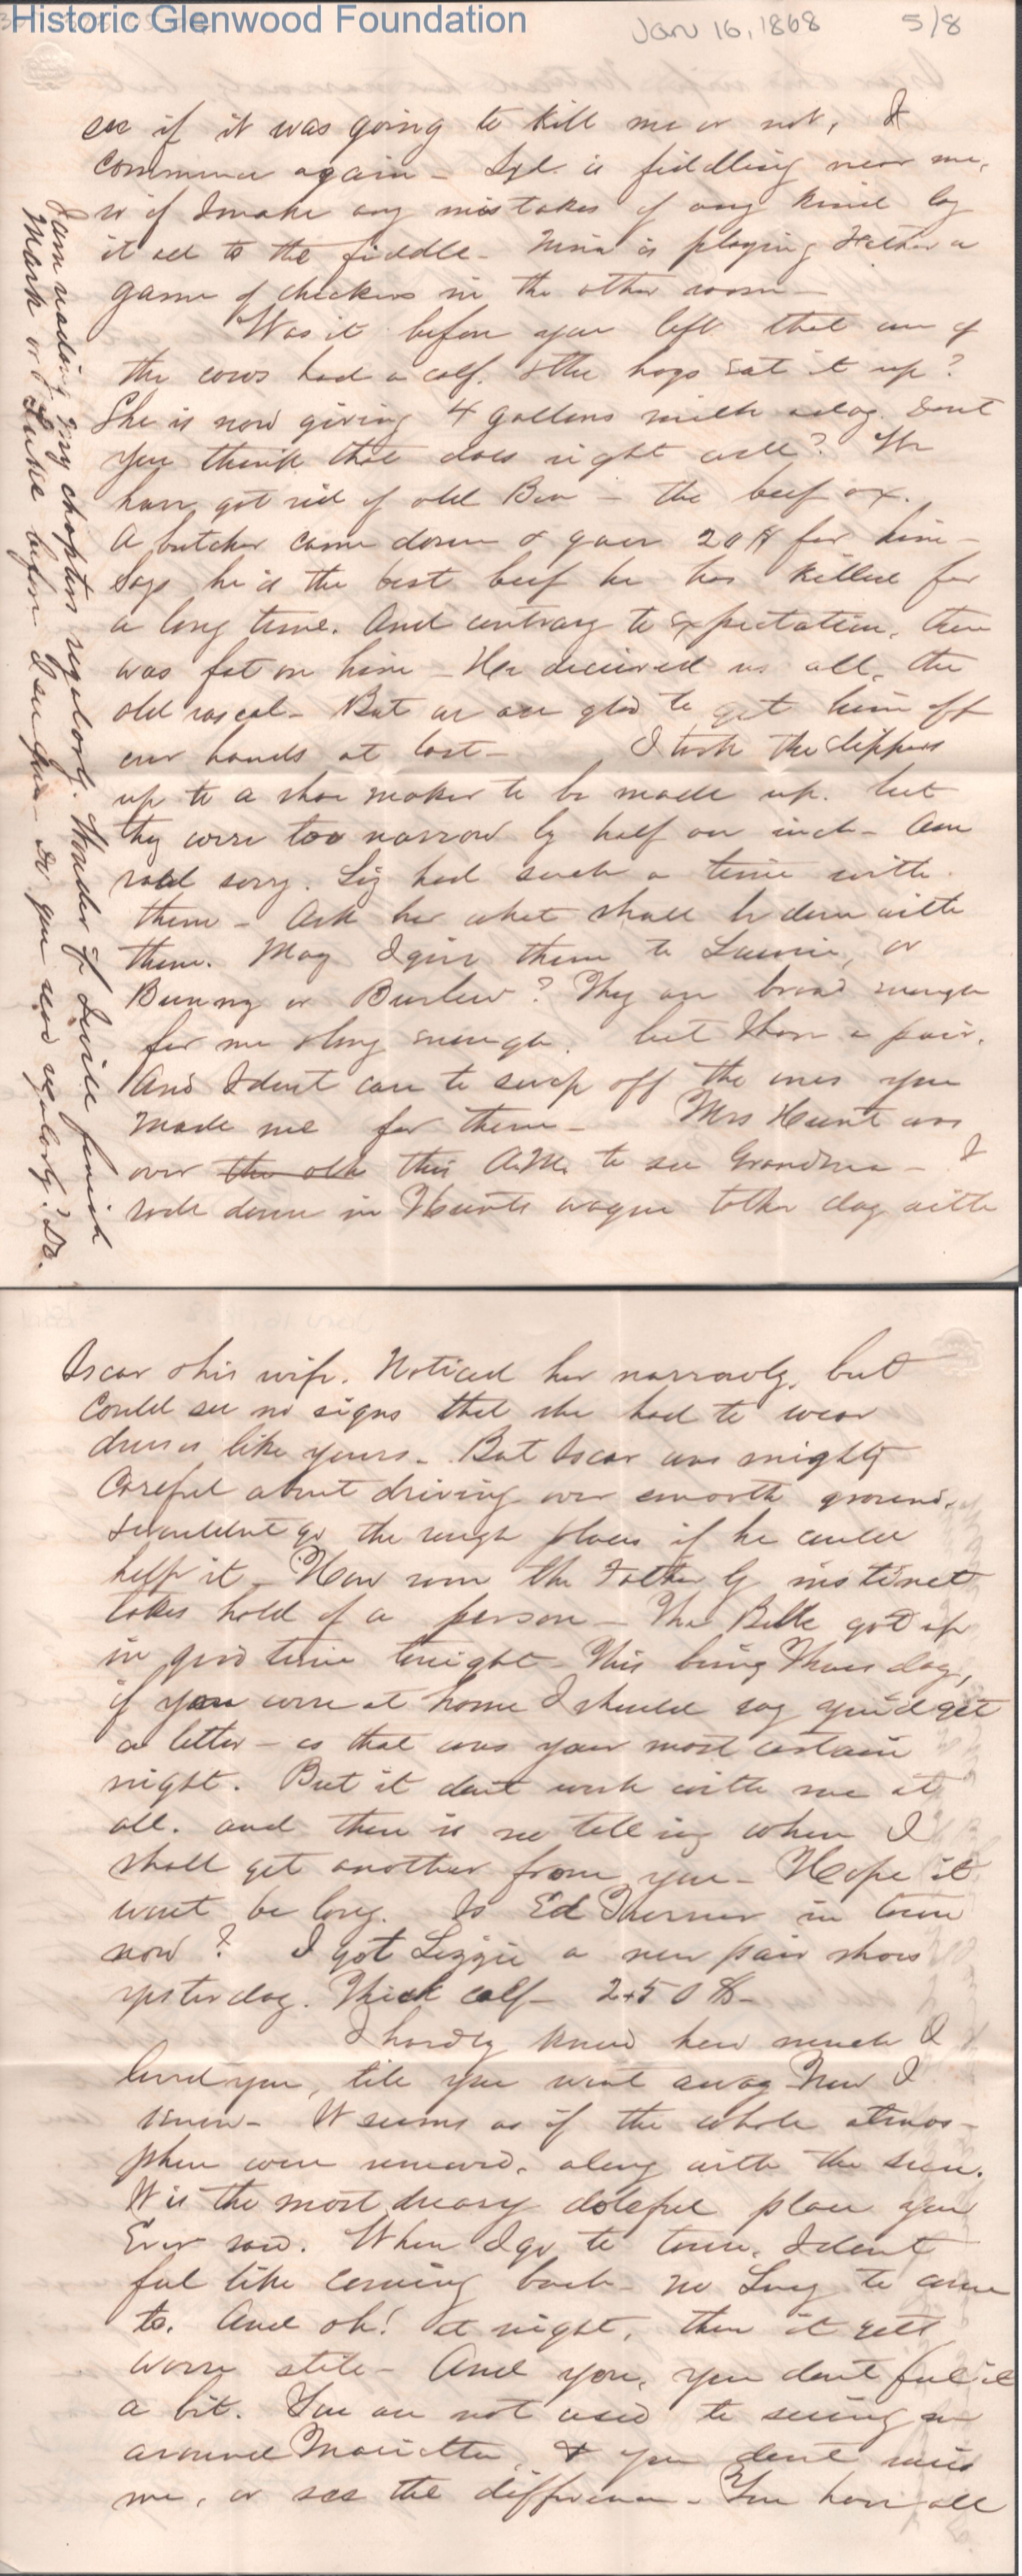 Historic Glenwood Foundation
Jan 16, 1868 5/8
see if it was going to kill me or not, I
commence again - Syl. is fiddling near me,
so if I make any mistakes of any kind lay
it all to the fiddle - Nina is playing Father a
game of checkers in the other room -
Was it before you left that one of
the cows had a calf. & the hogs eat it up?
She is now giving 4 gallons milk a day. Dont
you think that does right well? We
have got rid of old Ben - the beef ox.
A butcher came down & gave 20$ for him -
Says he is the best beef he has killed for
a long time. And contrary to expectation, there
was fat on him - He deceived us all, the
old rascal - But we are glad to get him off
our hands at last - I took the slippers
up to a shoe maker to be made up. but
they were too narrow by half an inch - Am
real sorry. Liz had such a time with
them - Ask her what shall be done with
them. May I give them to Laurie, or
Bunny or Burlew? They are broad enough
for me & long enough. but I have a pair.
And I dont care to swap off the ones you
made me for them - Mrs Hunt was
over the oth this A.M. to see Grandma - I
rode down in Hunts wagon tother day with
I am reading my chapters regularly. Wonder if I will finish
Mark or Luke before I see you - Do you read regularly? Do.
Oscar & his wife. Noticed her narrowly, but
could see no signs that she had to wear
dresses like yours - But Oscar was mighty
careful about driving over smooth ground,
& wouldnt go the rough places if he could
help it - How soon the Fatherly instinct
takes hold of a person - The Belle got up
in good time tonight - This being Thursday,
if you were at home I should say you'd get
a letter - as that was your most certain
night. But it dont work with me at
all. and there is no telling when I
shall get another from you - Hope it
wont be long. Is Ed Turner in town
now? I got Lizzie a new pair shoes
yesterday. Thick calf - 2.50$ -
I hardly knew how much I
loved you, till you went away Now I
know - It seems as if the whole atmos-
phere were removed, along with the sun.
It is the most dreary doleful place you
Ever saw. When I go to town, I dont
feel like coming back - no Lucy to come
to. And oh! at night, then it gets
worse still - And you, you dont feel it
a bit. You are not used to seeing me
around Marietta, & you dont miss
me, or see the difference - You have all